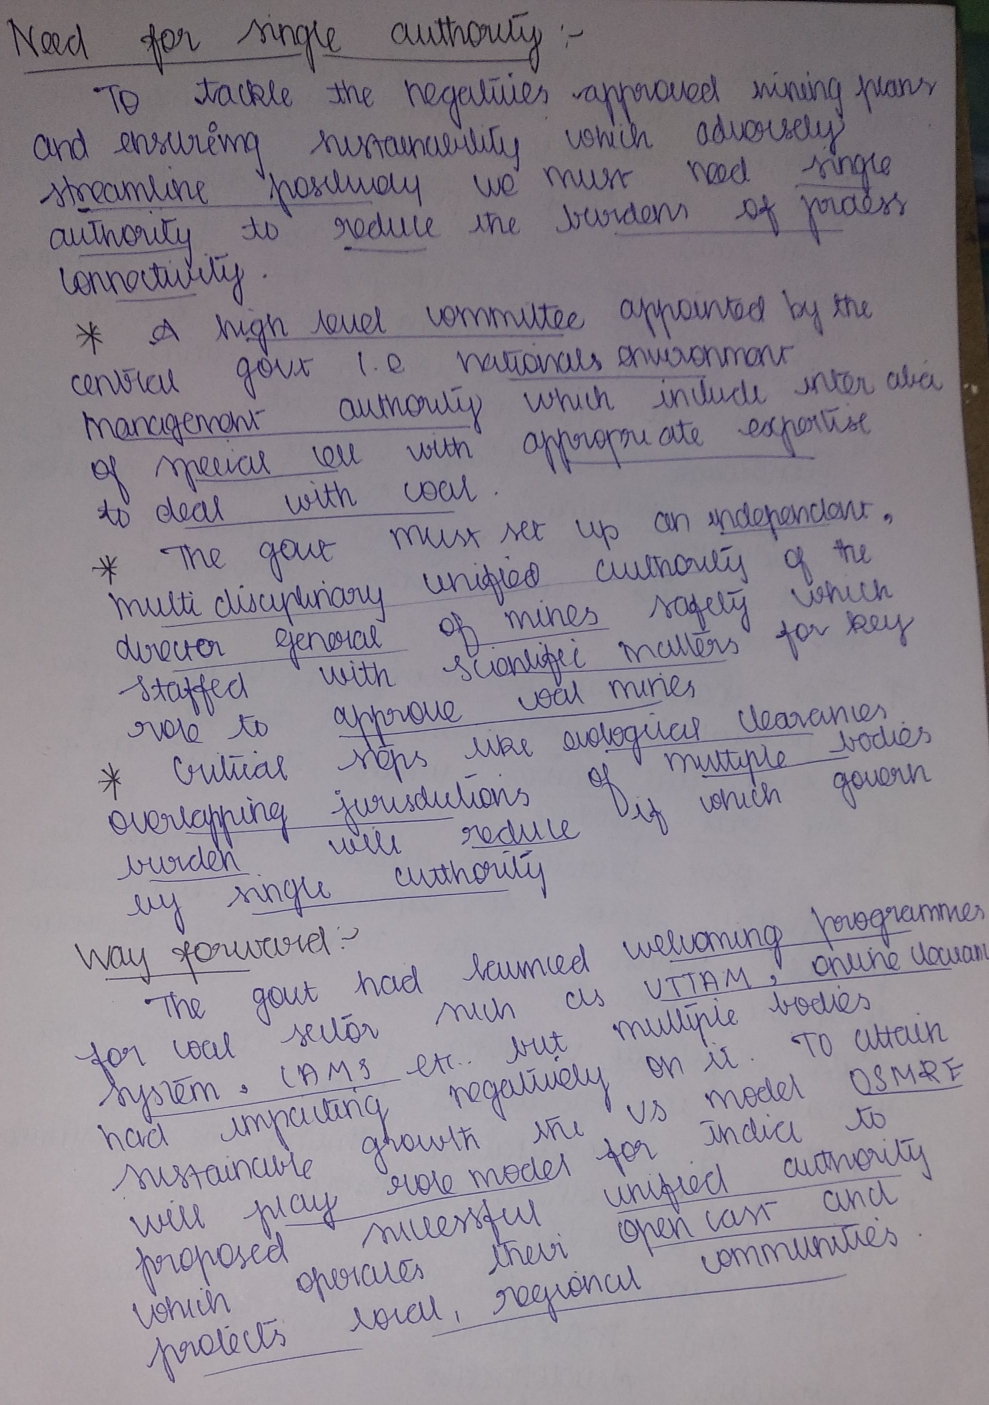 Need for single authority :-
To tackle the negatives approved mining plans
and ensuring sustainability which adversely
streamline we must need single
authority to reduce the burdens of process
connectivity.
* A high level committee appointed by the
central govt i.e nationals environment
management authority which include inter alia
of special cell with appropriate expertise
to deal with coal.
* The govt must set up an independant,
multi disciplinary unified authority of the
director general of mines safety which
staffed with scientific matters for key
role to approve coal mines
* Critical steps like ecological clearances
overlapping jurisdictions of multiple bodies
burden will reduce if which govern
by single authority
Way forward :-
The govt had launched welcoming programmes
for coal sector such as UTTAM, online
system, CAMS etc.. but multiple bodies
had impacting negatively on it. To attain
sustainable growth the US model OSMRE
will play role model for India to
proposed successful unified authority
which operates their open cast and
protects local, regional communities.